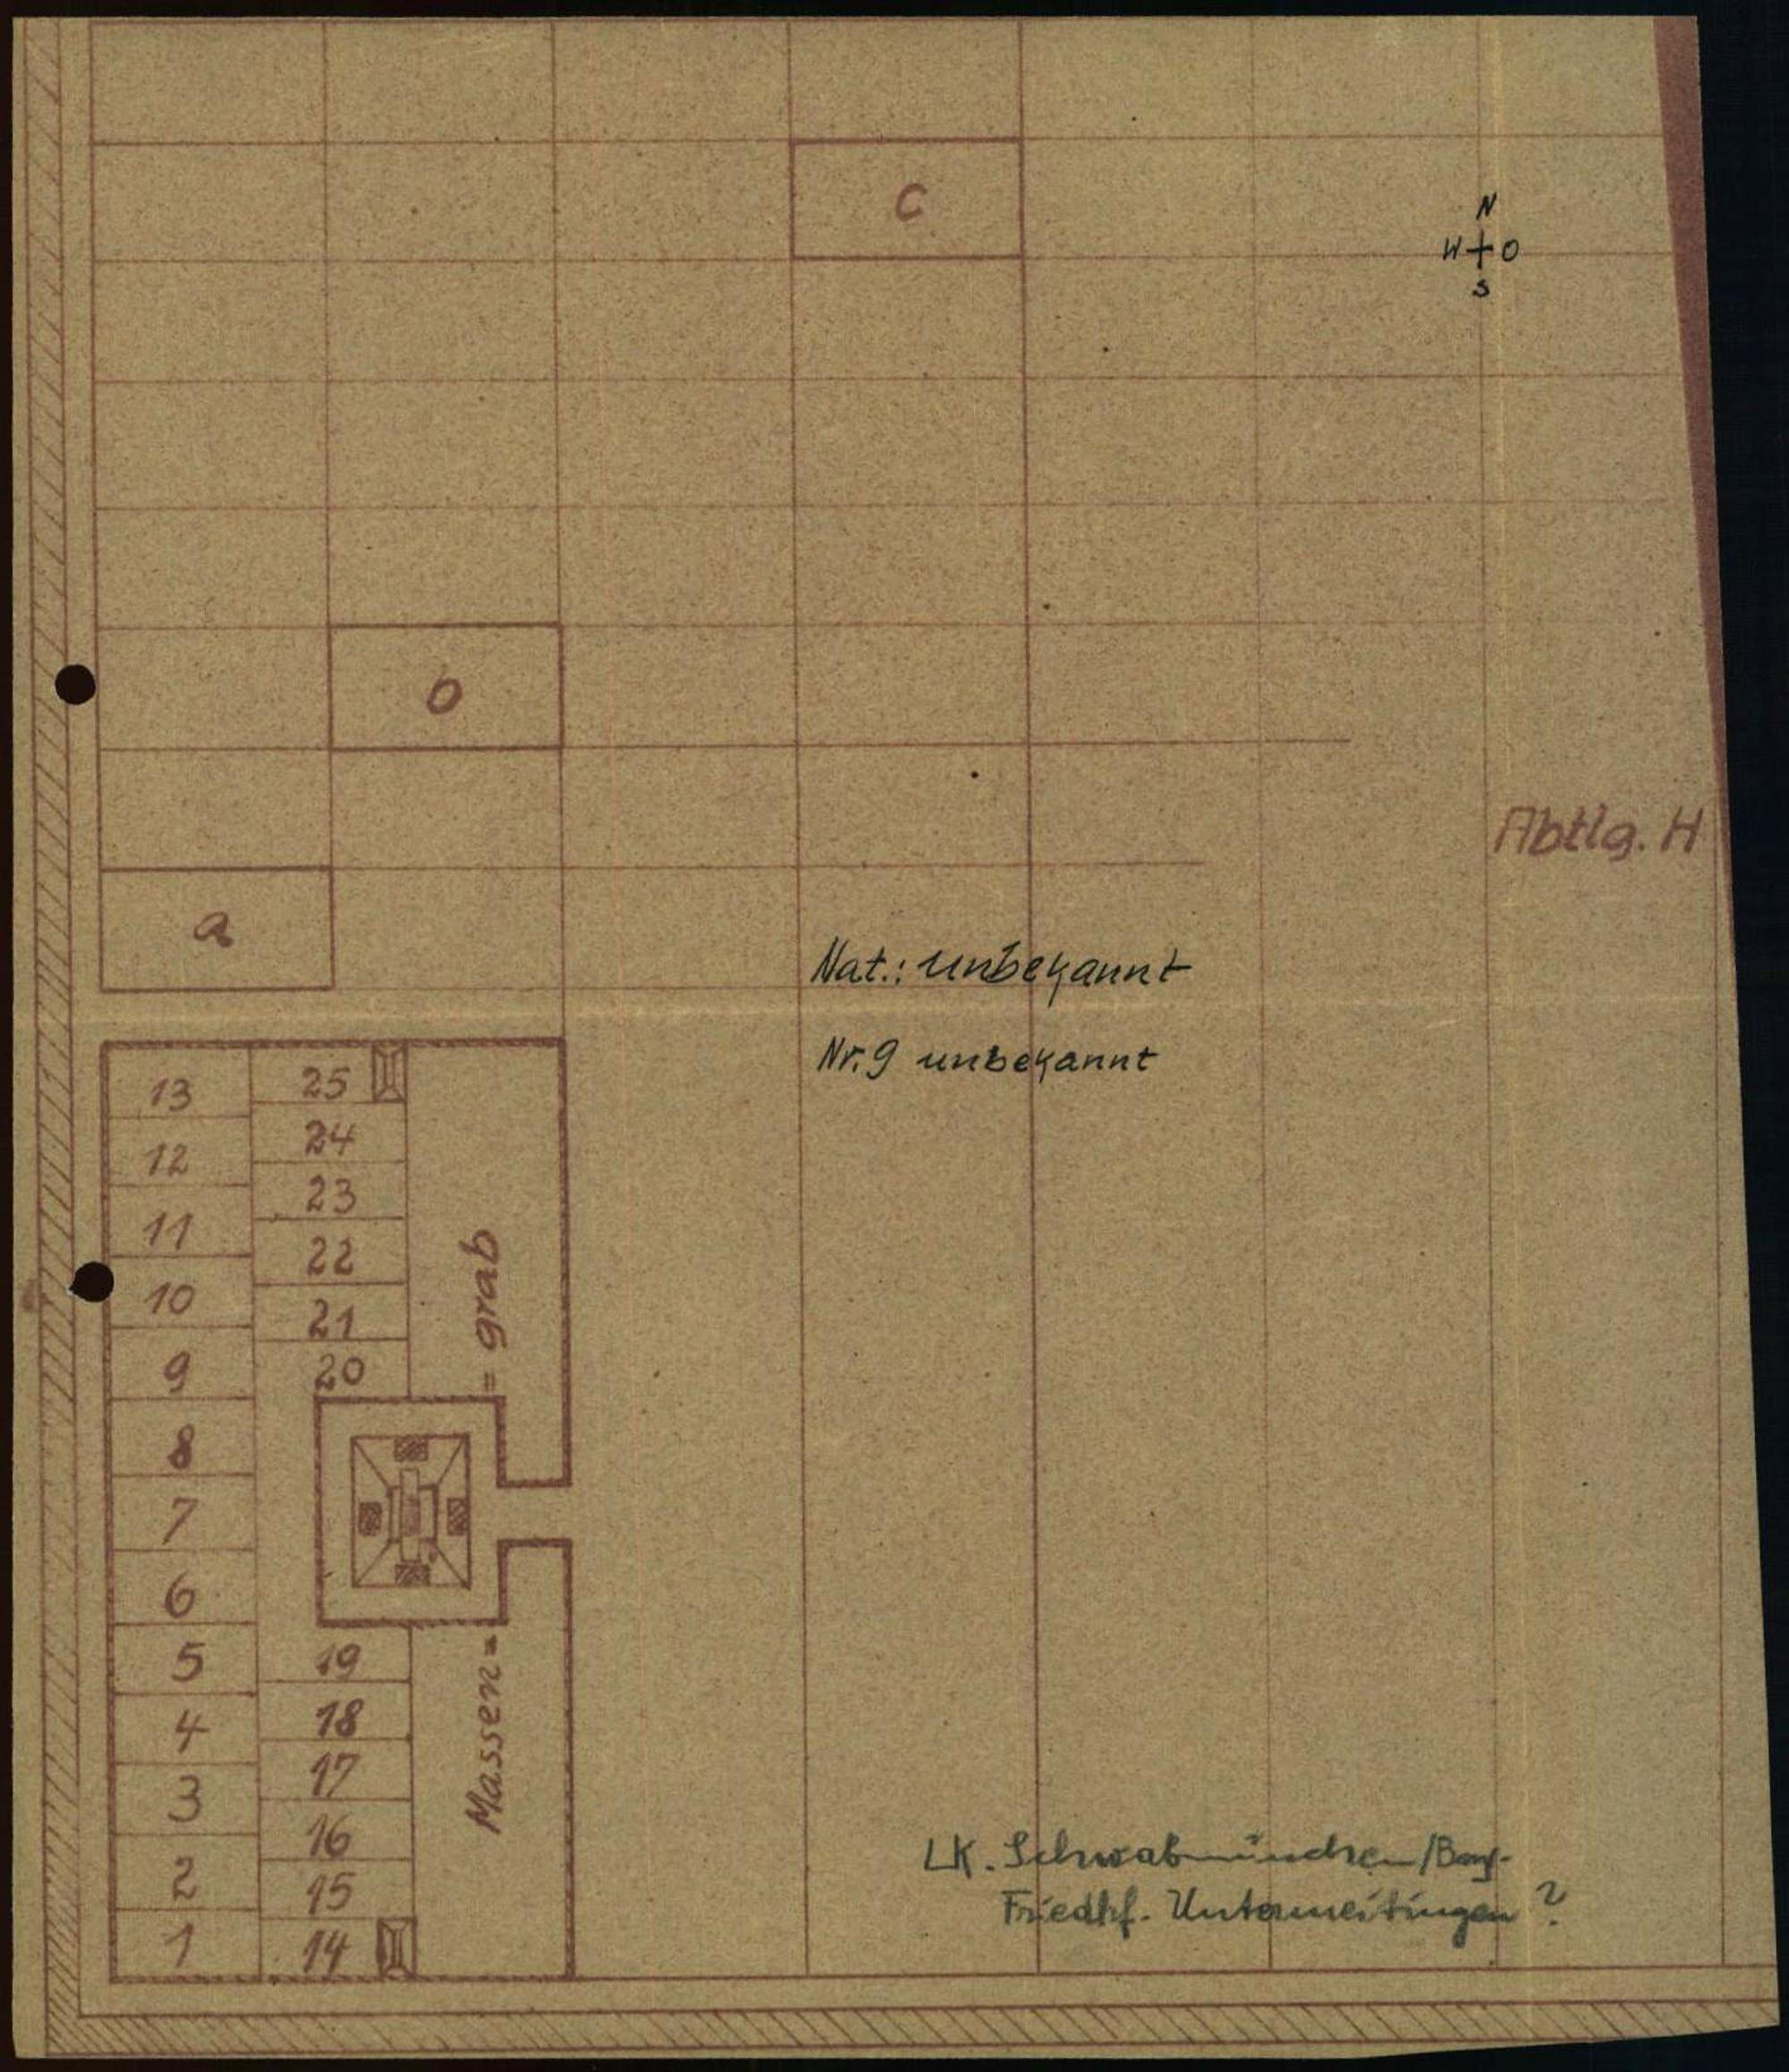 C
N
W+O
S
o
Abtlg. H
a
Nat.: unbekannt
Nr. 9 unbekannt
13 25
12 24
11 23
10 22
9 21
8 20
7
6
5 19
4 18
3 17
2 16
1 15
14
= grab
Massen=
LK. Schwabmünchen/Bay.
Friedhf. Untermeitingen ?